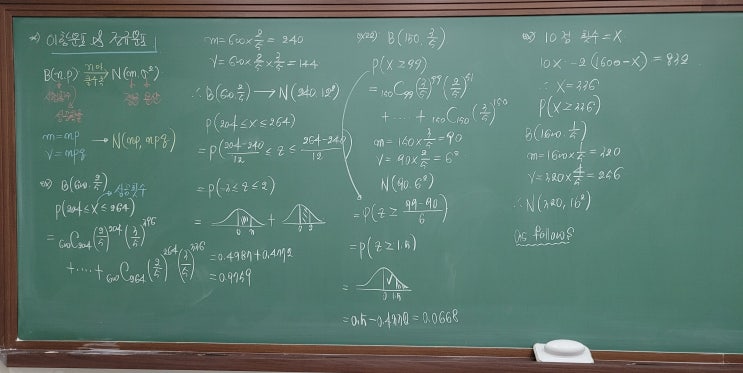 *) 이항분포 & 정규분포
B(n,p) n이 클수록 → N(m,σ²)
시행횟수 평균 분산
성공확률
m=np
V=npq → N(np, npq)
ex) B(600, 2/5) 성공횟수
P(204≤X≤264)
= 600C204 (2/5)^204 (3/5)^396
+ ‥‥ + 600C264 (2/5)^264 (3/5)^336
m=600×2/5=240
V=600×2/5×3/5=144
∴ B(600, 2/5) → N(240, 12²)
P(204≤X≤264)
=P(204-240/12 ≤ Z ≤ 264-240/12)
=P(-3≤Z≤2)
= 0 3 + 0 2
=0.4987+0.4772
=0.9759
ex22) B(150, 3/5)
P(X≥99)
= 150C99 (3/5)^99 (2/5)^51
+ ‥‥ + 150C150 (3/5)^150
m=150×3/5=90
V=90×2/5=6²
N(90, 6²)
=P(Z≥ 99-90/6)
=P(Z≥1.5)
= 0 1.5
=0.5-0.4332=0.0668
10점 횟수=X
10X-2(1600-X)=832
∴ X=336
P(X≥336)
B(1600, 1/5)
m=1600×1/5=320
V=320×4/5=256
∴ N(320, 16²)
as follows